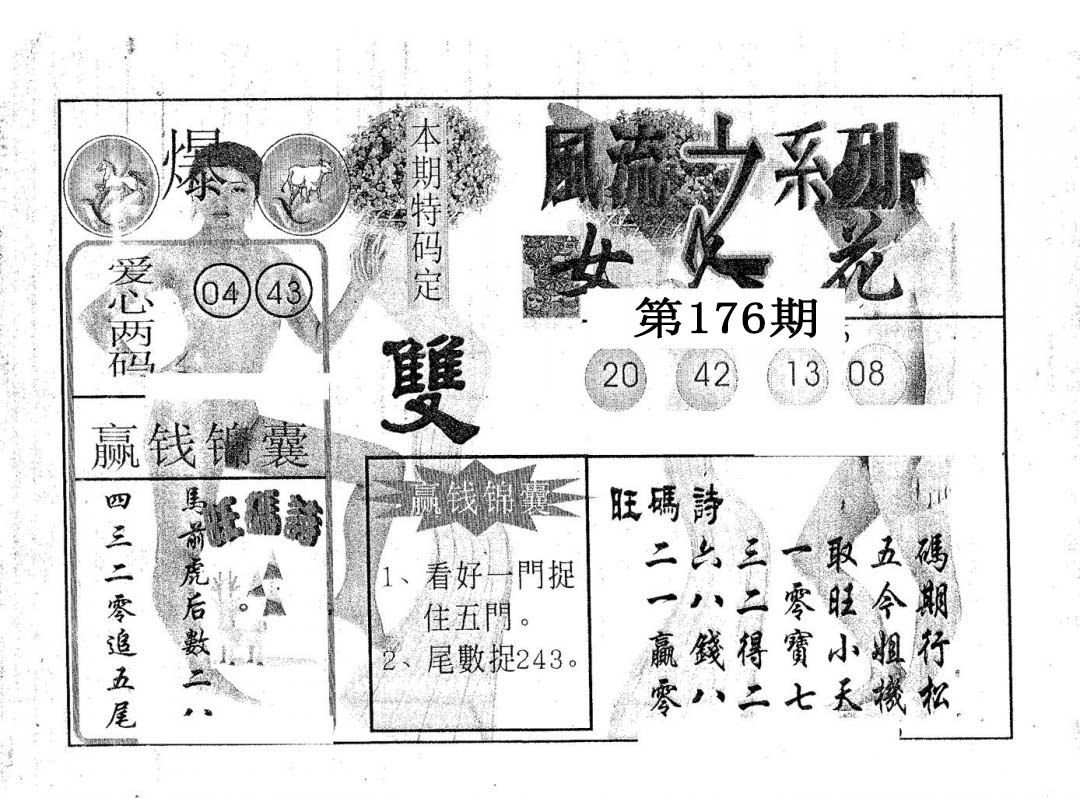 爆
爱心两码
04 43
赢钱锦囊
馬前虎后數二八
四三二零追五尾
旺碼詩
本期特码定
雙
風流之系列
女人花
第176期
20 42 13 08
赢钱锦囊
1、看好一門捉
住五門。
2、尾數捉243。
旺碼詩
碼期行松
五今姐機
取旺小天
一零寶七
三二得二
六八錢八
二一贏零